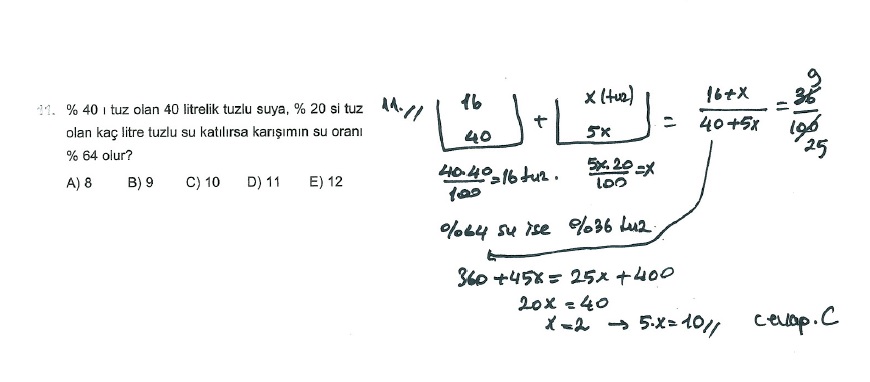 11. % 40 ı tuz olan 40 litrelik tuzlu suya, % 20 si tuz
olan kaç litre tuzlu su katılırsa karışımın su oranı
% 64 olur?
A) 8 B) 9 C) 10 D) 11 E) 12
11.//
16 x (tuz) 16+x 9 36
40 + 5x = 40+5x = 100 25
40.40/100 = 16 tuz. 5x.20/100 = x
%64 su ise %36 tuz.
360 + 45x = 25x + 400
20x = 40
x = 2 → 5.x = 10// cevap. C